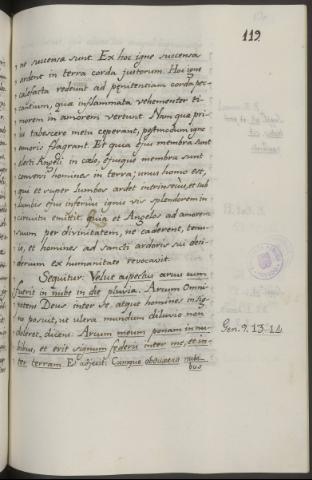 112
ne succensa sunt. Ex hoc igne succensa
ardent in terra corda justorum. Hoc igne
calefacta redeunt ad penitentiam corda pec-
cantium, qua inflammata vehementer ti-
morem in amorem vertunt. Nam qua pri-
us tabescere metu ceperant, postmodum igne
amoris flagrant. Et quia ejus membra sunt
electi Angeli in cælo, ejusque membra sunt
conversi homines in terra; unus homo est,
qui et super lumbos ardet intrinsecus, et sub
lumbis ejus inferius ignis vis splendorem in
circuitu emittit. quia et Angelos ad amorem
suum per divinitatem, ne caderent, tenu-
it, et homines ad sancti ardoris sui desi-
derium ex humanitate revocavit.
Sequitur: Velut aspectus arcus cum
fuerit in nube in die pluviæ. Arcum Omni-
potens Deus inter se, atque homines in sig-
no posuit, ut ultra mundum diluvio non
deleret, dicens: Arcum meum ponam in nu-
bibus, et erit signum fœderis inter me, et in-
ter terram. Et adjecit: Cumque obduxero nubi-
bus
Gen. 9. 13-14